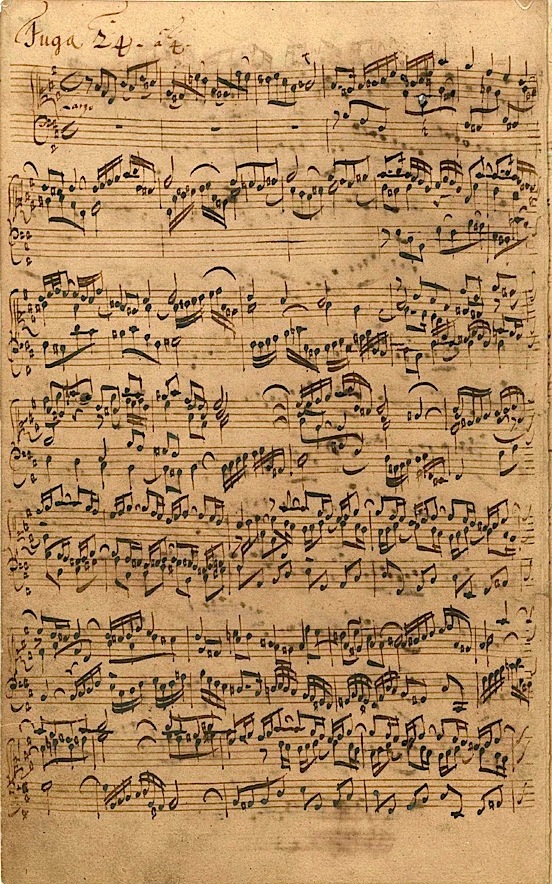 Fuga 24. à 4.
Largo